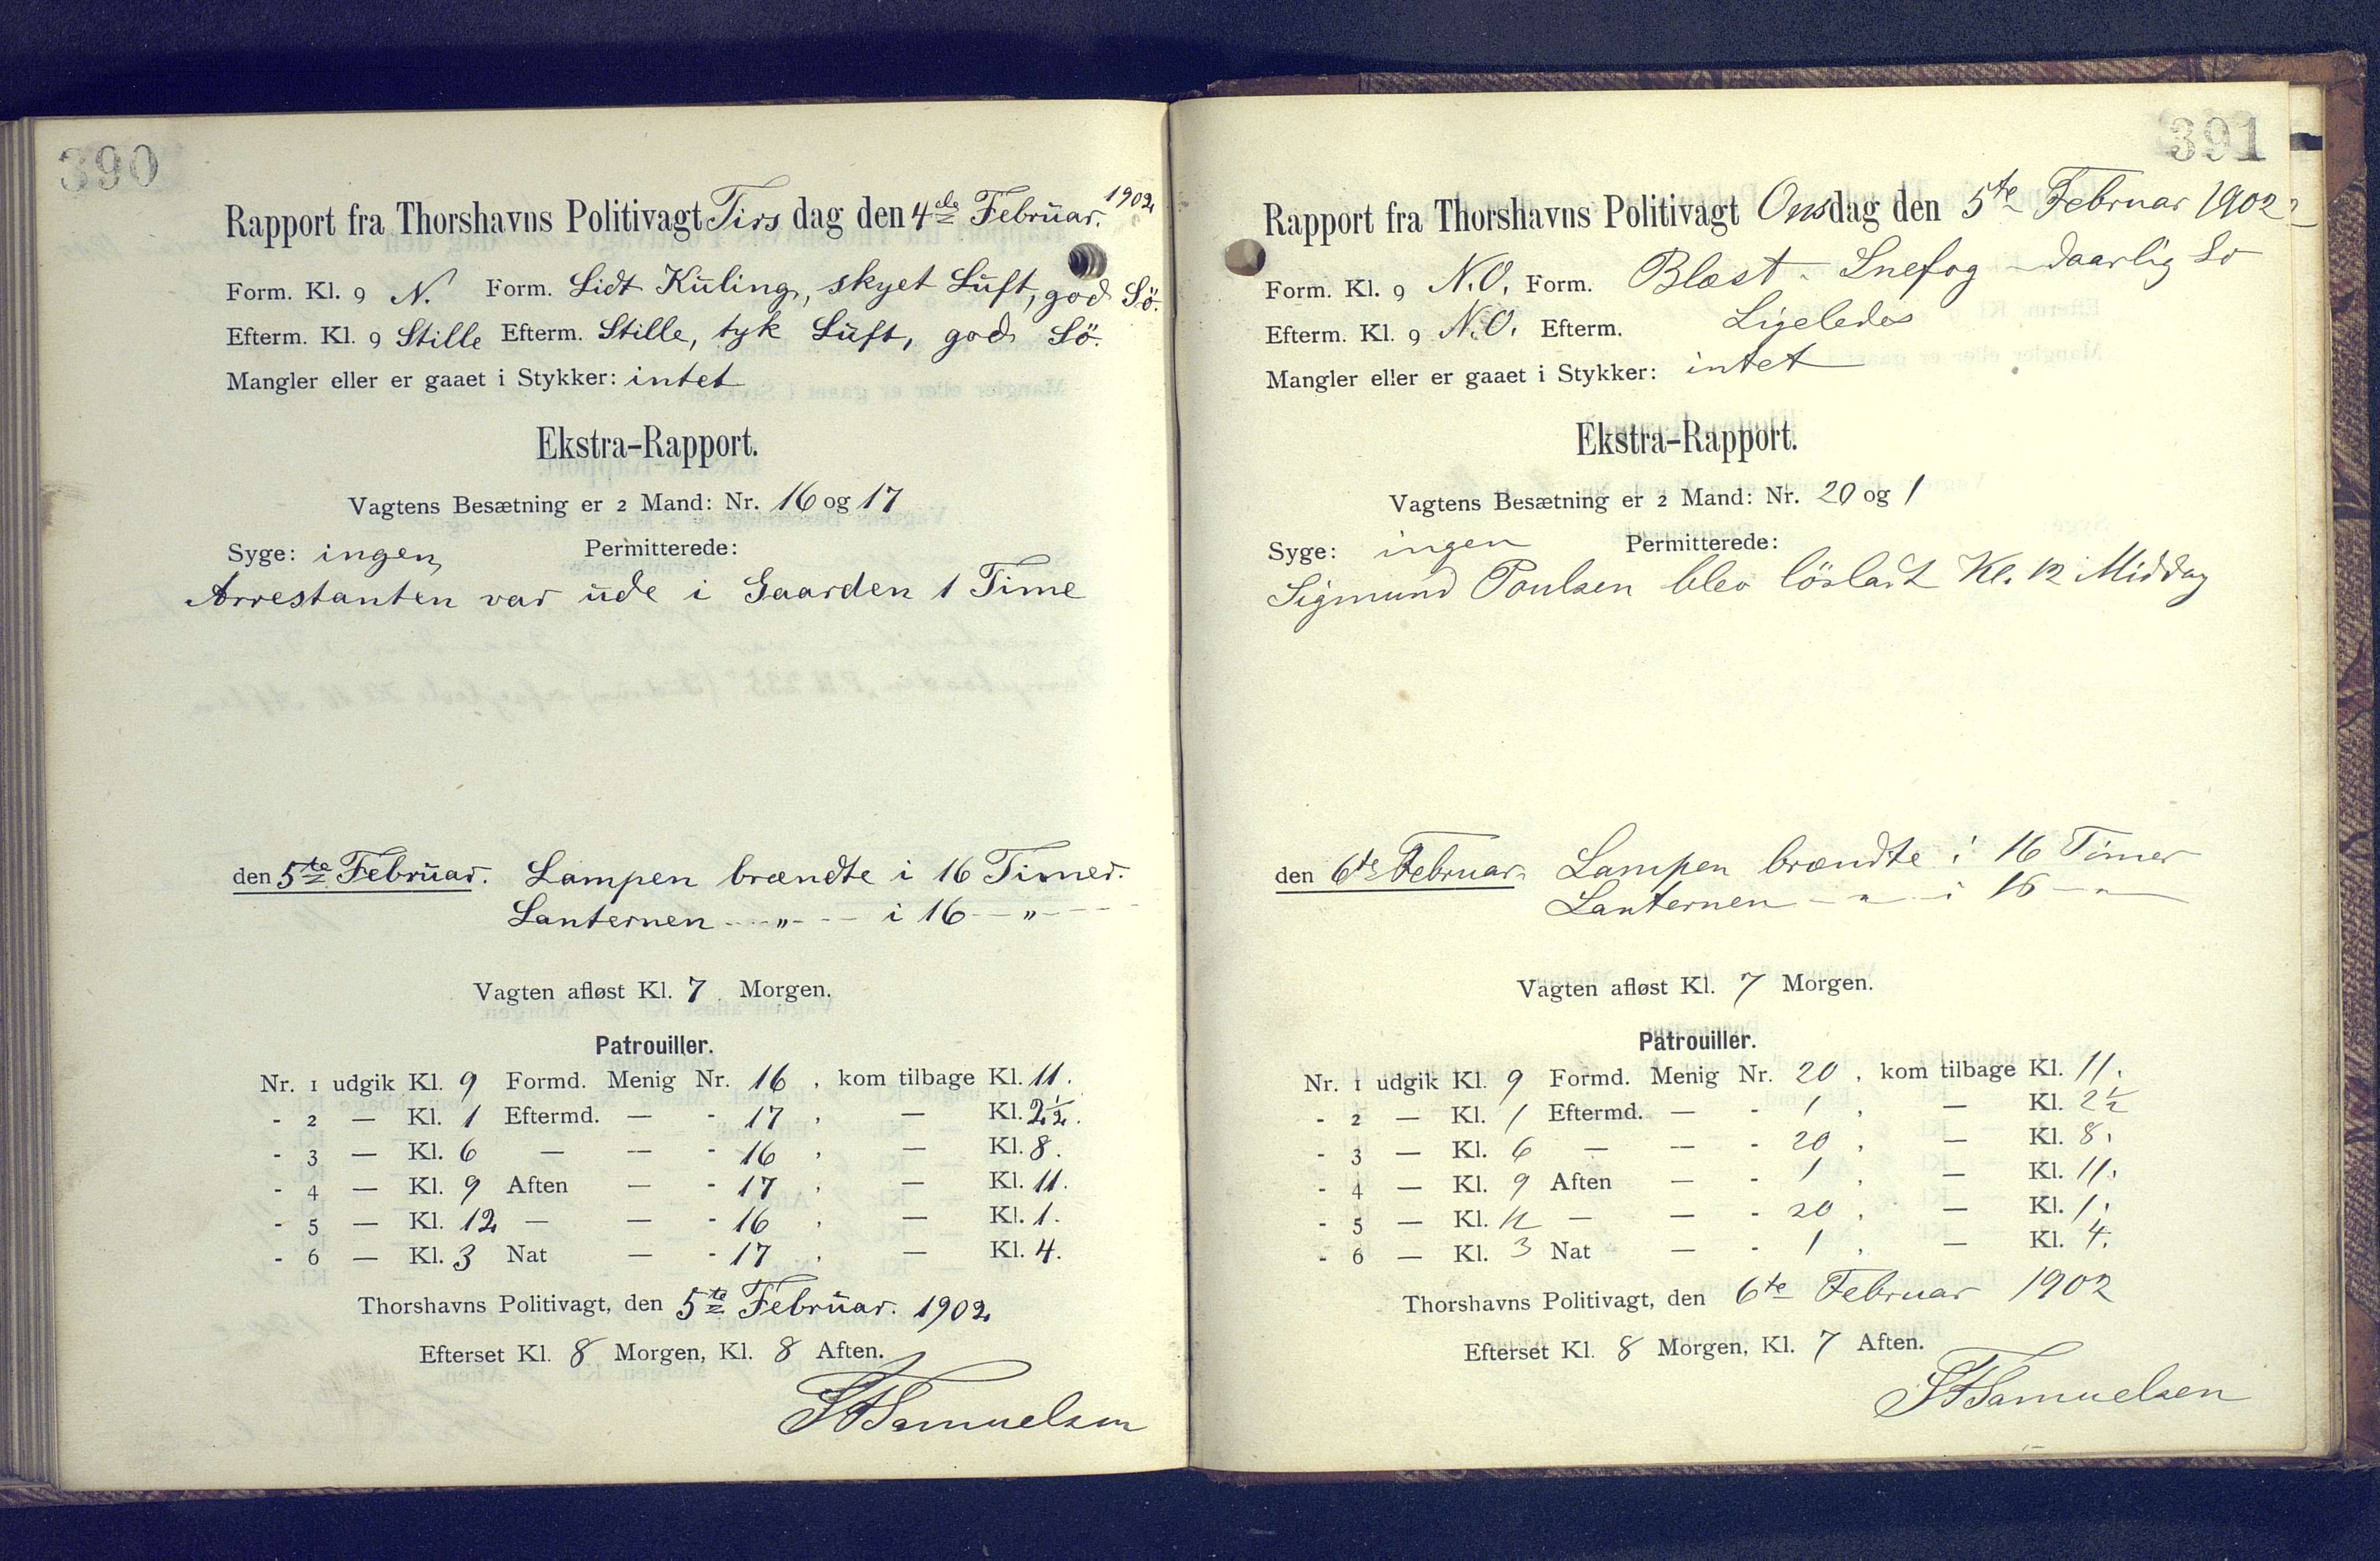 390
Rapport fra Thorshavns Politivagt Tirsdag den 4de Februar. 1902
Form. Kl. 9 N. Form. Lidt Kuling, skyet Luft, god Sö.
Efterm. Kl. 9 Stille Efterm. Stille, tyk Luft, god Sö.
Mangler eller er gaaet i Stykker: intet
Ekstra-Rapport.
Vagtens Besætning er 2 Mand: Nr. 16 og 17
Syge: ingen Permitterede:
Arrestanten var ude i Gaarden 1 Time
den 5te Februar. Lampen brændte i 16 Timer.
Lanternen - - „ - - i 16 - „ - -
Vagten afløst Kl. 7 Morgen.
Patrouiller.
Nr. 1 udgik Kl. 9 Formd. Menig Nr. 16, kom tilbage Kl. 11.
- 2 — Kl. 1 Eftermd. — - 17, — Kl. 2½.
- 3 — Kl. 6 — — - 16, — Kl. 8.
- 4 — Kl. 9 Aften — - 17, — Kl. 11.
- 5 — Kl. 12 — — - 16, — Kl. 1.
- 6 — Kl. 3 Nat — - 17, — Kl. 4.
Thorshavns Politivagt, den 5te Februar. 1902
Efterset Kl. 8 Morgen, Kl. 8 Aften.
Samuelsen
391
Rapport fra Thorshavns Politivagt Onsdag den 5te Februar 1902
Form. Kl. 9 N.O. Form. Blæst - Snefog - daarlig Sö
Efterm. Kl. 9 N.O. Efterm. Ligeledes
Mangler eller er gaaet i Stykker: intet
Ekstra-Rapport.
Vagtens Besætning er 2 Mand: Nr. 20 og 1
Syge: ingen Permitterede:
Sigmund Poulsen blev lösladt Kl. 12 Middag
den 6te Februar. Lampen brændte i 16 Timer
Lanternen - „ - i 16 - „ -
Vagten afløst Kl. 7 Morgen.
Patrouiller.
Nr. 1 udgik Kl. 9 Formd. Menig Nr. 20, kom tilbage Kl. 11.
- 2 — Kl. 1 Eftermd. — - 1, — Kl. 2½
- 3 — Kl. 6 — — - 20, — Kl. 8.
- 4 — Kl. 9 Aften — - 1, — Kl. 11.
- 5 — Kl. 12 — — - 20, — Kl. 1.
- 6 — Kl. 3 Nat — - 1, — Kl. 4.
Thorshavns Politivagt, den 6te Februar 1902
Efterset Kl. 8 Morgen, Kl. 7 Aften.
Samuelsen